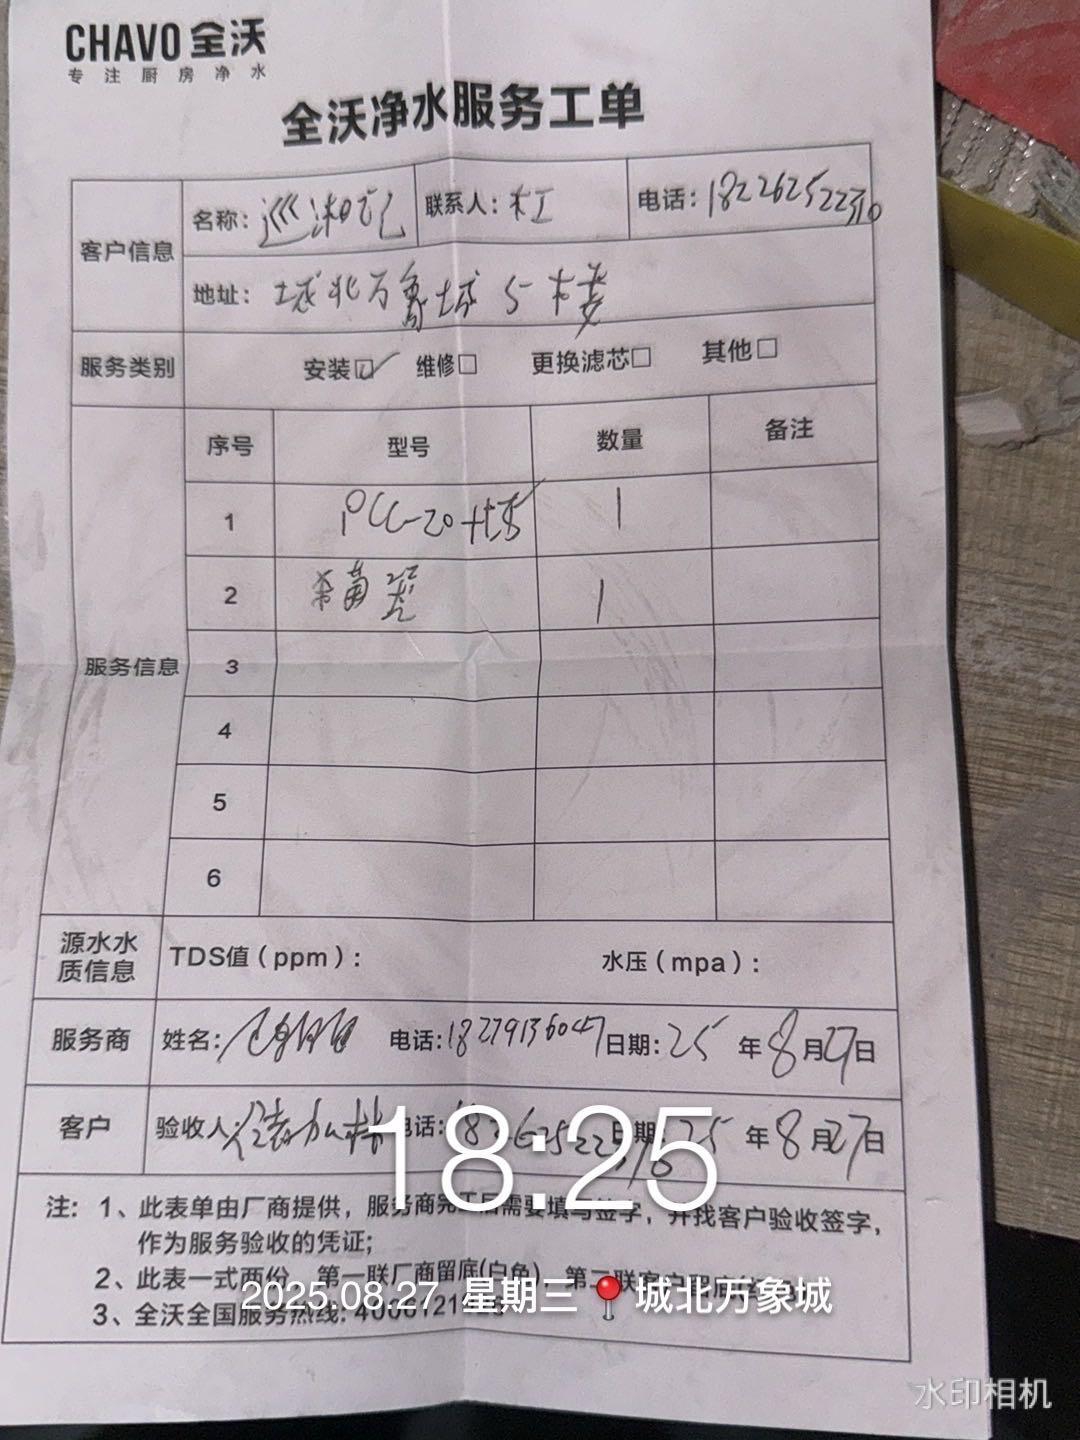 CHAVO 全沃
专注厨房净水
全沃净水服务工单
客户信息 名称: 巡湘记 联系人: 杜 电话:
地址: 城北万象城 5楼
服务类别 安装☑ 维修□ 更换滤芯□ 其他□
序号 型号 数量 备注
服务信息
1 1
2 杀菌 1
3
4
5
6
源水水质信息 TDS值(ppm): 水压(mpa):
服务商 姓名: 电话:18279136047 日期:25年8月27日
客户 验收人: 电话: 日期:25年8月27日
18:25
注: 1、此表单由厂商提供,服务商完工后需要填写签字,并找客户验收签字,
作为服务验收的凭证;
2、此表一式两份,第一联厂商留底(白色),第二联客户
3、全沃全国服务热线:
2025.08.27 星期三 城北万象城
水印相机